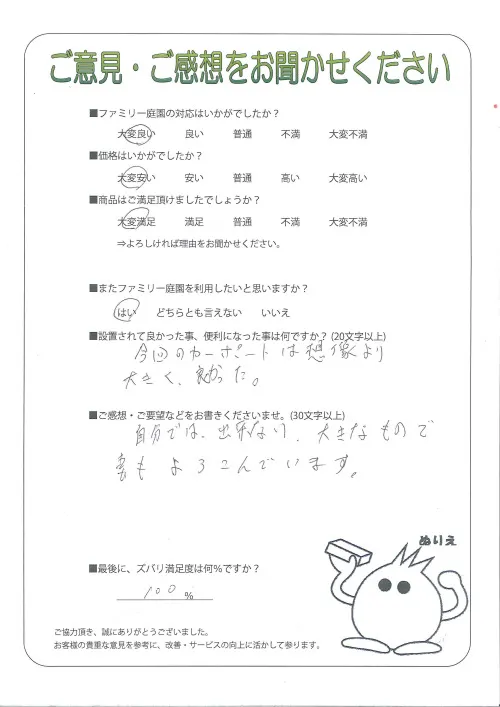 ご意見・ご感想をお聞かせください
■ファミリー庭園の対応はいかがでしたか？
大変良い 良い 普通 不満 大変不満
■価格はいかがでしたか？
大変安い 安い 普通 高い 大変高い
■商品はご満足頂けましたでしょうか？
大変満足 満足 普通 不満 大変不満
⇒よろしければ理由をお聞かせください。
■またファミリー庭園を利用したいと思いますか？
はい どちらとも言えない いいえ
■設置されて良かった事、便利になった事は何ですか？(20文字以上)
今回のカーポートは想像より
大きく、良かった。
■ご感想・ご要望などをお書きくださいませ。(30文字以上)
自分では、出来ない、大きなもので
妻もよろこんでいます。
ぬりえ
■最後に、ズバリ満足度は何％ですか？
100％
ご協力頂き、誠にありがとうございました。
お客様の貴重な意見を参考に、改善・サービスの向上に活かして参ります。